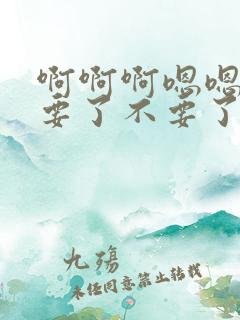 啊啊啊嗯嗯
要了不要了
九殇
未经同意禁止转载